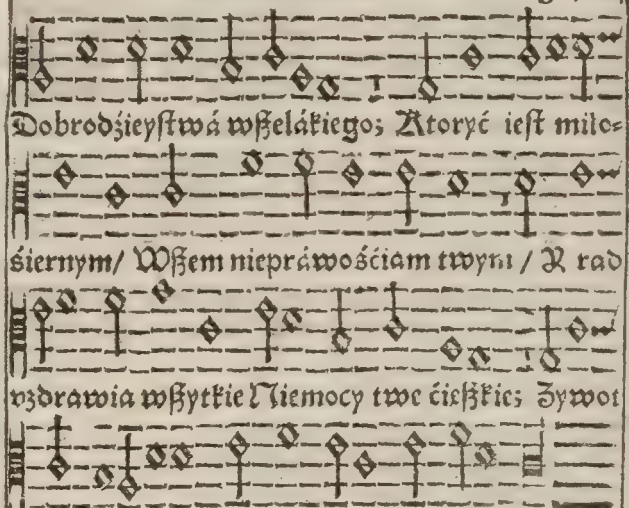 Dobrodźieyſtwá wßelákiego; Ktoryć ieſt miło-
śiernym/ Wßem nieprawośćiam twym / A rad
vzdrawia wßytkie Niemocy twe ćięßkie; Zywot